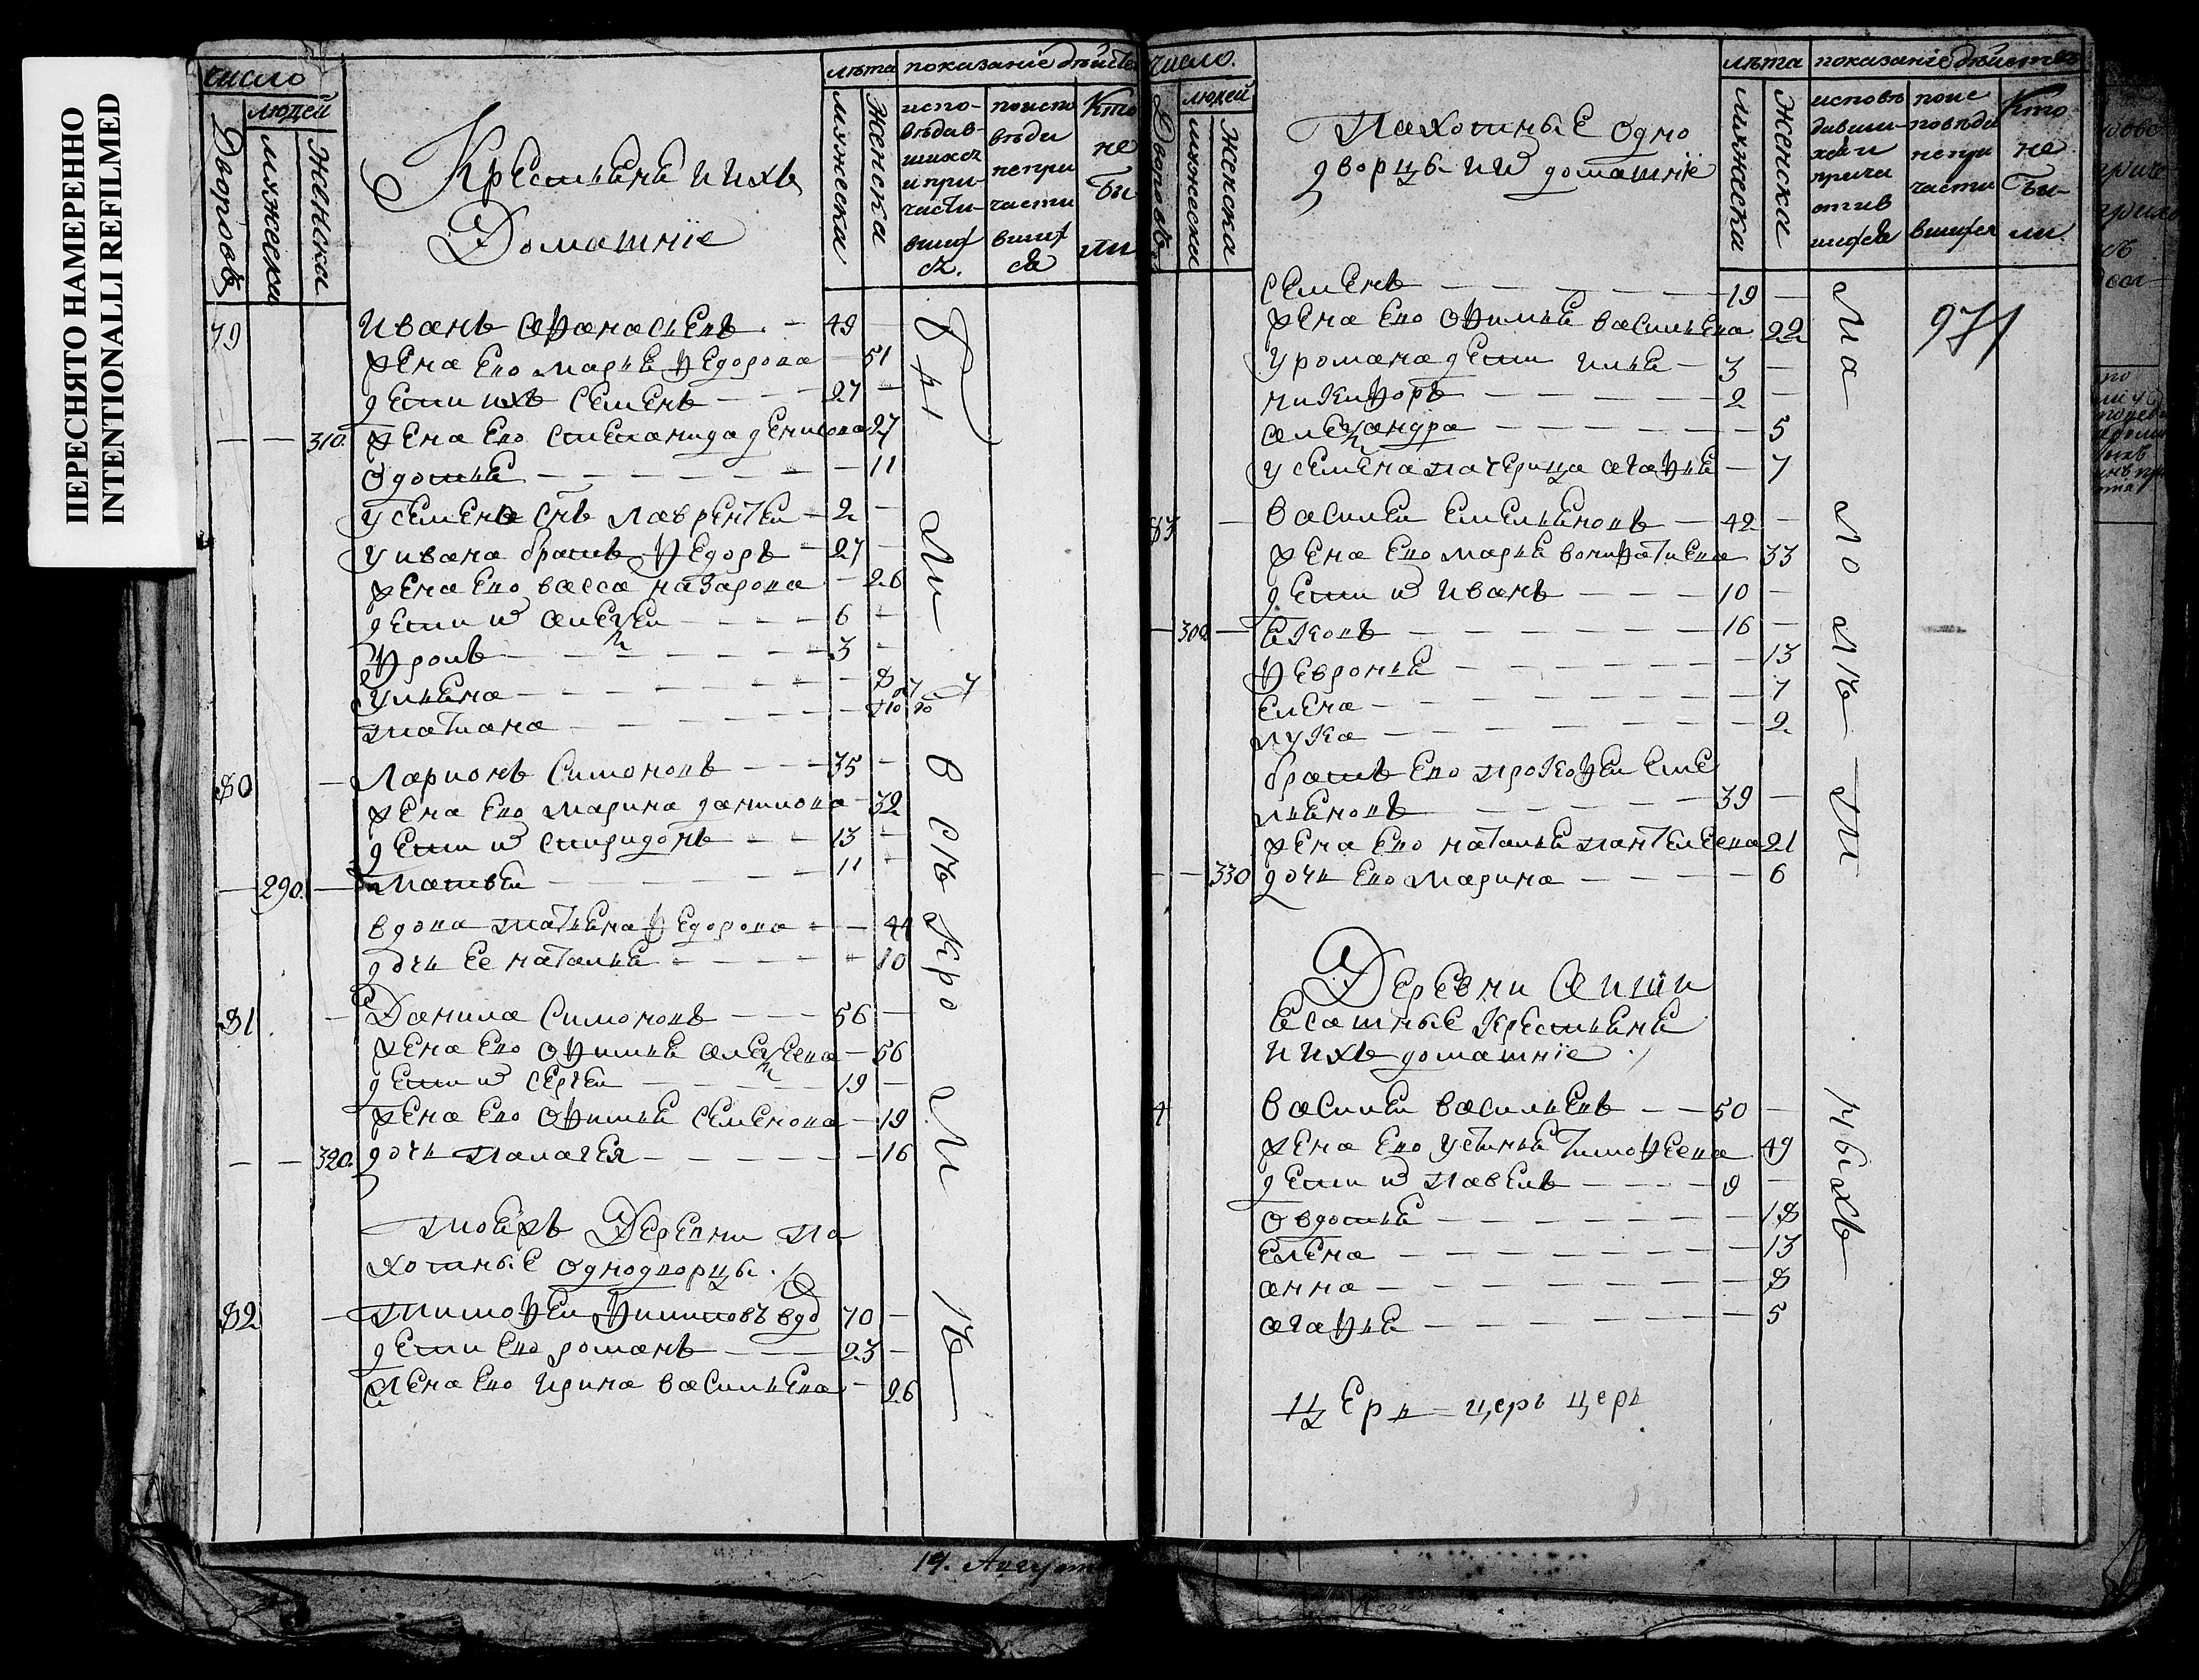 ПЕРЕСНЯТО НАМЕРЕННО
INTENTIONALLI REFILMED
число
людей
Дворовъ
мужеска
женска
Крестьяне и ихъ
Домашнiе
лѣта
мужеска
женска
показанiе дѣйств
испо-
вѣдав-
шихся
и при-
части-
вших
ся.
поиспо
вѣди
непри
части
вших
ся
Кто
не
бы
ли
79 Иванъ Афанасьевъ 49
жена Ево марья Федорова 51
дети ихъ Семенъ 27
310. жена Ево степанида денисова 27
Одотья 11
у семена снъ лаврентеи 2
у ивана братъ Федоръ 27
жена Ево васса назарова 26
дети их алексеи 6
Фролъ 3
ульяна 8
татиана
80 Ларионъ Симоновъ 35
жена Ево марина данилова 32
дети их спиридонъ 13
290. матвеи 11
вдова татьяна Федорова 44
дочь ее наталья 10
81 Данила Симоновъ 56
жена Ево Офимья алексеева 56
дети их сергеи 19
жена Ево Офимья семенова 19
320. дочь палагея 16
тояжъ Деревни па
хотные однодворцы.
82 тимофеи Филиповъ вдо 70
дети Ево романъ 23
жена Ево Ирина васильева 26
14. Август
число.
людей
Дворовъ
мужеска
женска
Пахотные одно
дворцы и их домашнiе
лѣта
мужеска
женска
показанiе дѣйств
исповѣ
давши-
хся и
прича
стив
шихся
поис
повѣди
непри
части
вшихся
Кто
не
бы-
ли
971
семенъ 19
жена Ево Офимья васильева 22
у романа дети илья 3
никифоръ 2
александра 5
у семена падчерица агафья 7
83 Василеи емельяновъ 42
жена Ево марья вонифатиева 33
дети их иванъ 10
300 яковъ 16
Февронья 13
елена 7
лука 2
братъ Ево прокофеи еме
льяновъ 39
жена Ево наталья пантелеева 21
330 дочь Ево марина 6
Деревни
ясашные крестьяне
и ихъ домашнiе
4 василеи васильевъ 50
жена Ево устинья тимофеева 49
дети их павелъ 9
Овдотья 18
елена 13
анна 8
агафья 5
Церь церь церь